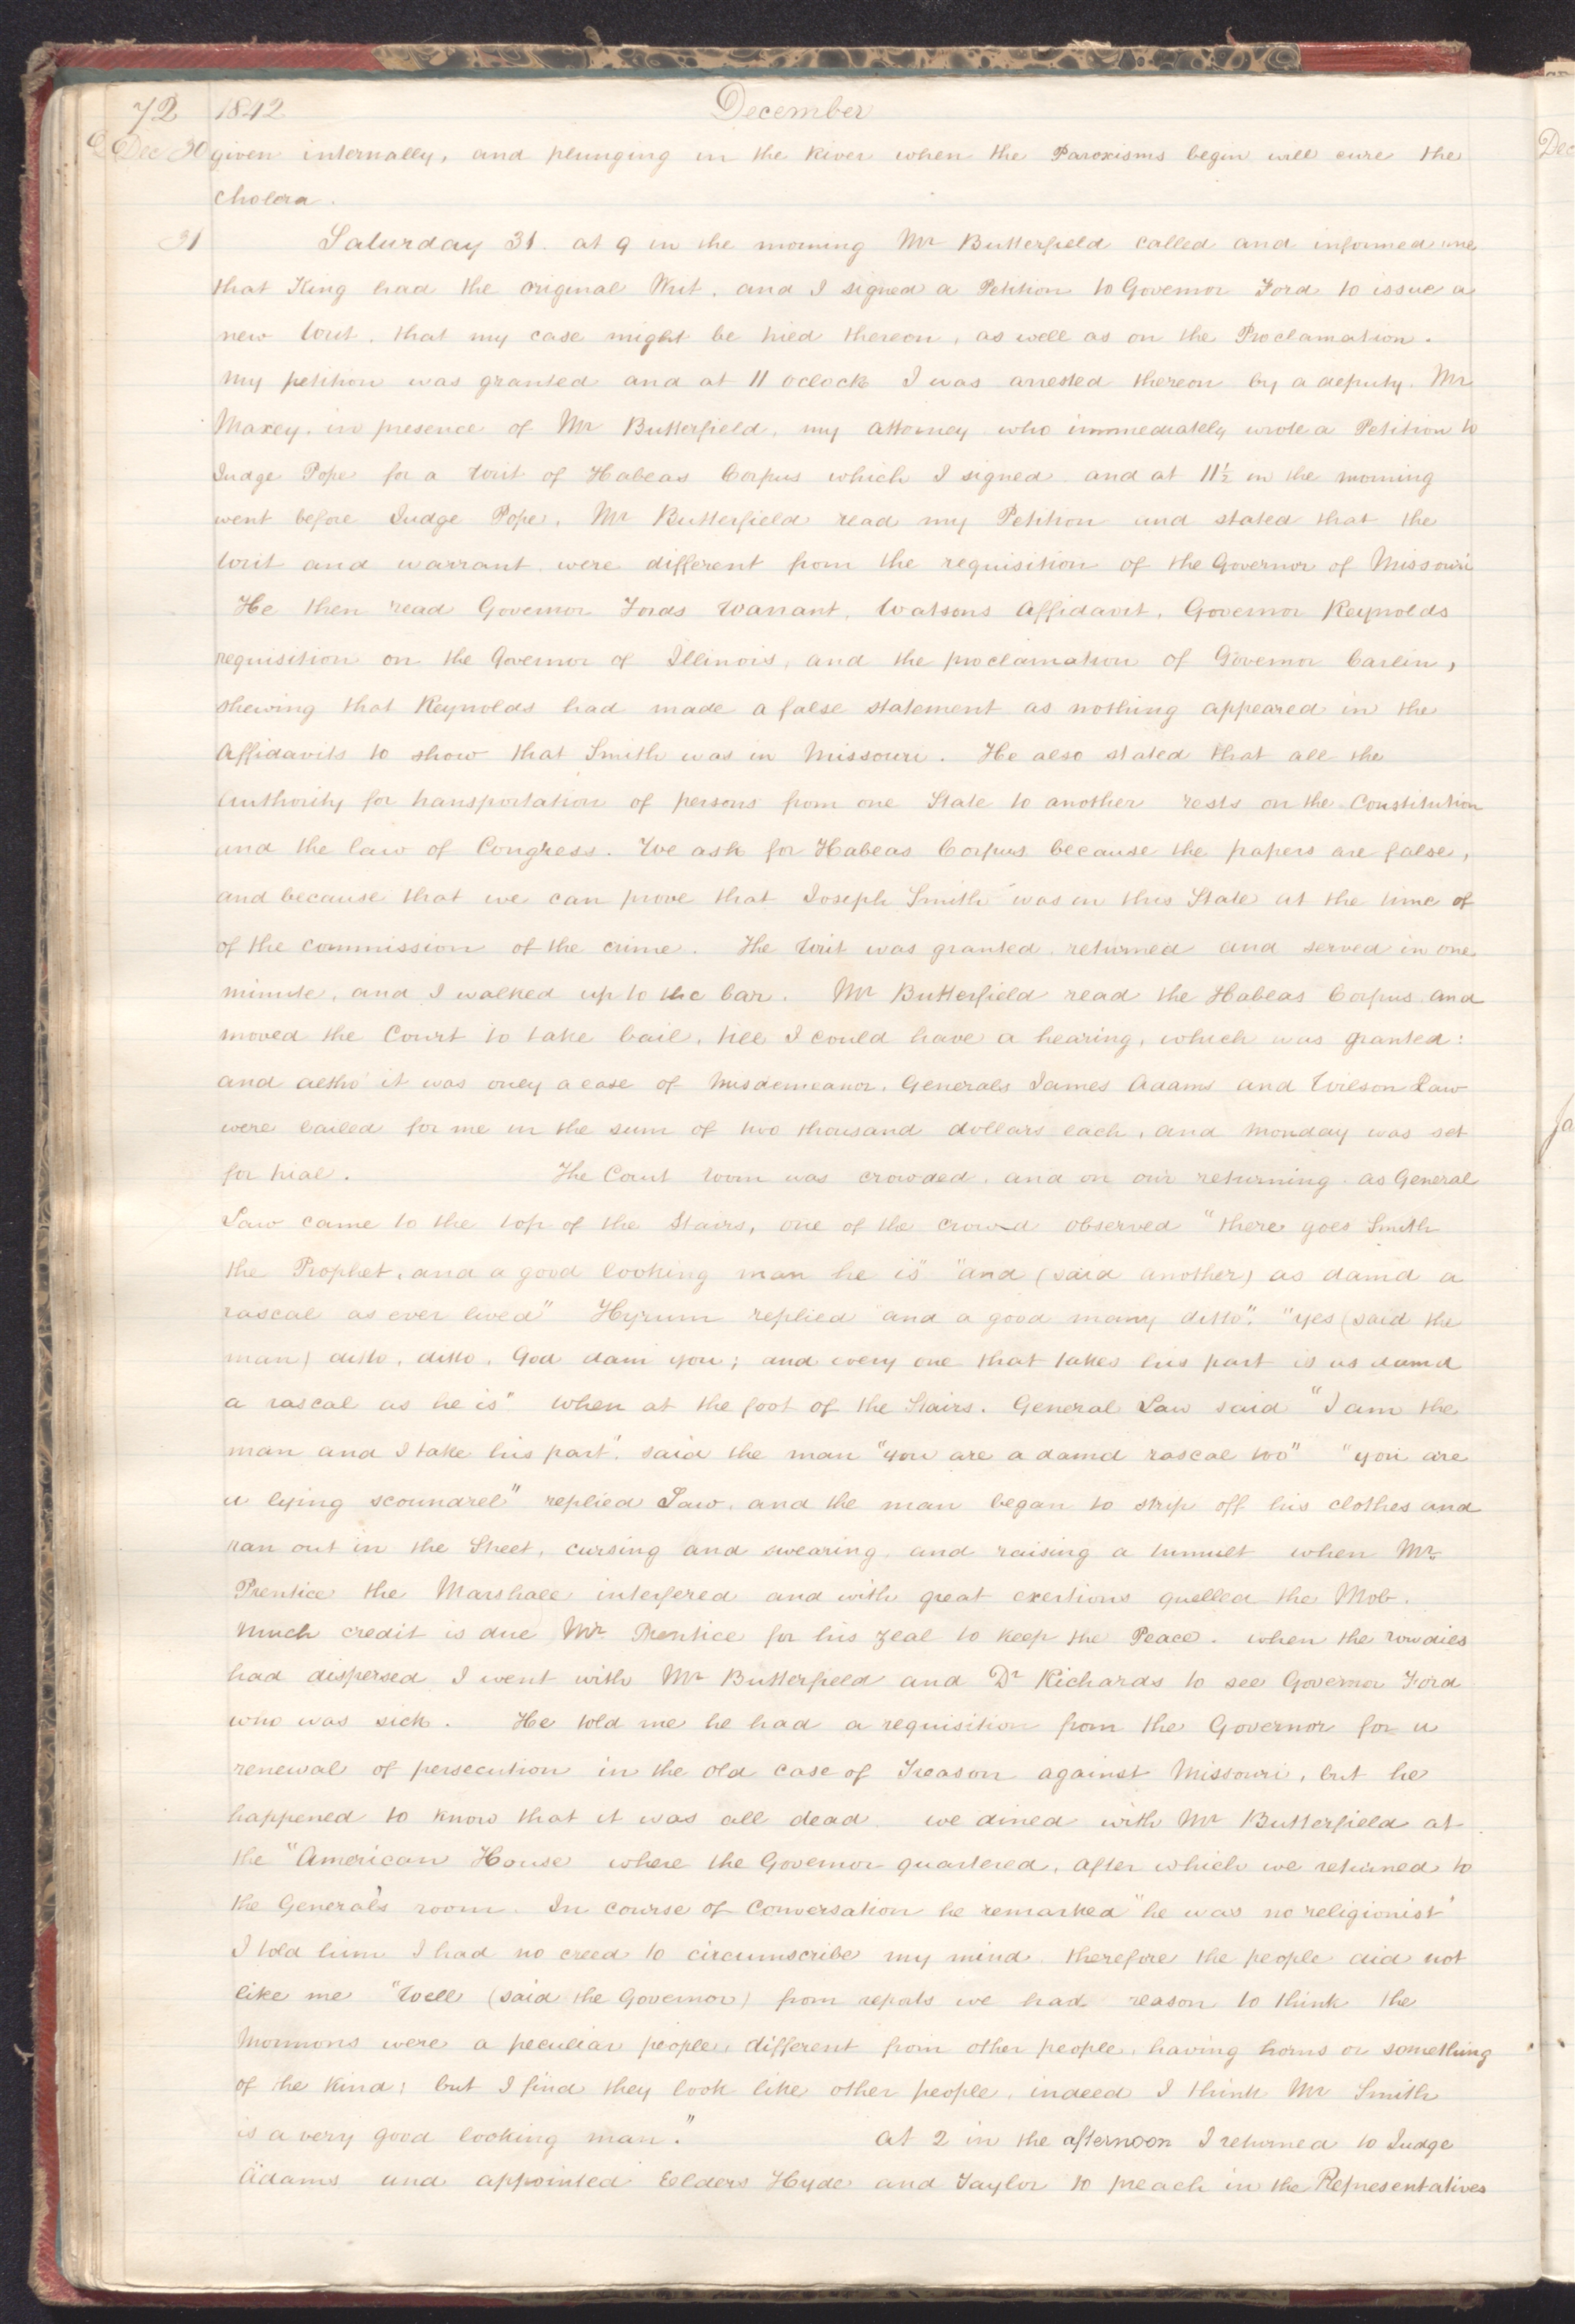 72 1842 December
Dec 30 given internally, and plunging in the River when the Paroxisms begin will cure the
Cholera.
31 Saturday 31. at 9 in the morning Mr Butterfield called and informed me
that King had the original Writ, and I signed a Petition to Governor Ford to issue a
new Writ, that my case might be tried thereon, as well as on the Proclamation.
My petition was granted and at 11 oclock I was arrested thereon by a deputy. Mr
Maxey, in presence of Mr Butterfield, my attorney who immediately wrote a Petition to
Judge Pope for a Writ of Habeas Corpus which I signed and at 11½ in the morning
went before Judge Pope, Mr Butterfield read my Petition and stated that the
Writ and warrant were different from the requisition of the Governor of Missouri
He then read Governor Fords Warrant, Watsons Affidavit, Governor Reynolds
requisition on the Governor of Illinois, and the proclamation of Governor Carlin,
shewing that Reynolds had made a false statement as nothing appeared in the
Affidavits to show that Smith was in Missouri. He also stated that all the
Authority for transportation of persons from one State to another rests on the Constitution
and the law of Congress. We ask for Habeas Corpus because the papers are false,
and because that we can prove that Joseph Smith was in this State at the time of
of the commission of the crime. The Writ was granted, returned and served in one
minute, and I walked up to the bar. Mr Butterfield read the Habeas Corpus and
moved the Court to take bail, till I could have a hearing, which was granted:
and altho' it was only a case of Misdemeanor, Generals James Adams and Wilson Law
were bailed for me in the sum of two thousand dollars each, and Monday was set
for trial. The Court room was crowded, and on our returning as General
Law came to the top of the Stairs, one of the crowd observed "there goes Smith
the Prophet, and a good looking man he is" "and (said another) as damd a
rascal as ever lived" Hyrum replied "and a good many ditto". "yes (said the
man) ditto, ditto, God dam you; and every one that takes his part is as damd
a rascal as he is" when at the foot of the Stairs. General Law said "I am the
man and I take his part". said the man "you are a damd rascal too" "you are
a lying scoundrel" replied Law, and the man began to strip off his clothes and
ran out in the Street, cursing and swearing, and raising a tumult when Mr
Prentice the Marshall interfered and with great exertions quelled the Mob.
Much credit is due Mr Prentice for his zeal to keep the Peace. when the rowdies
had dispersed I went with Mr Butterfield and Dr Richards to see Governor Ford
who was sick. He told me he had a requisition from the Governor for a
renewal of persecution in the old case of Treason against Missouri, but he
happened to know that it was all dead. we dined with Mr Butterfield at
the "American House where the Governor quartered, after which we returned to
the General's room. In course of Conversation he remarked "he was no religionist"
I told him I had no creed to circumscribe my mind. therefore the people did not
like me "Well (said the Governor) from reports we had reason to think the
Mormons were a peculiar people, different from other people, having horns or something
of the kind; but I find they look like other people, indeed I think Mr Smith
is a very good looking man." at 2 in the afternoon I returned to Judge
Adams and appointed Elders Hyde and Taylor to preach in the Representatives
Dec